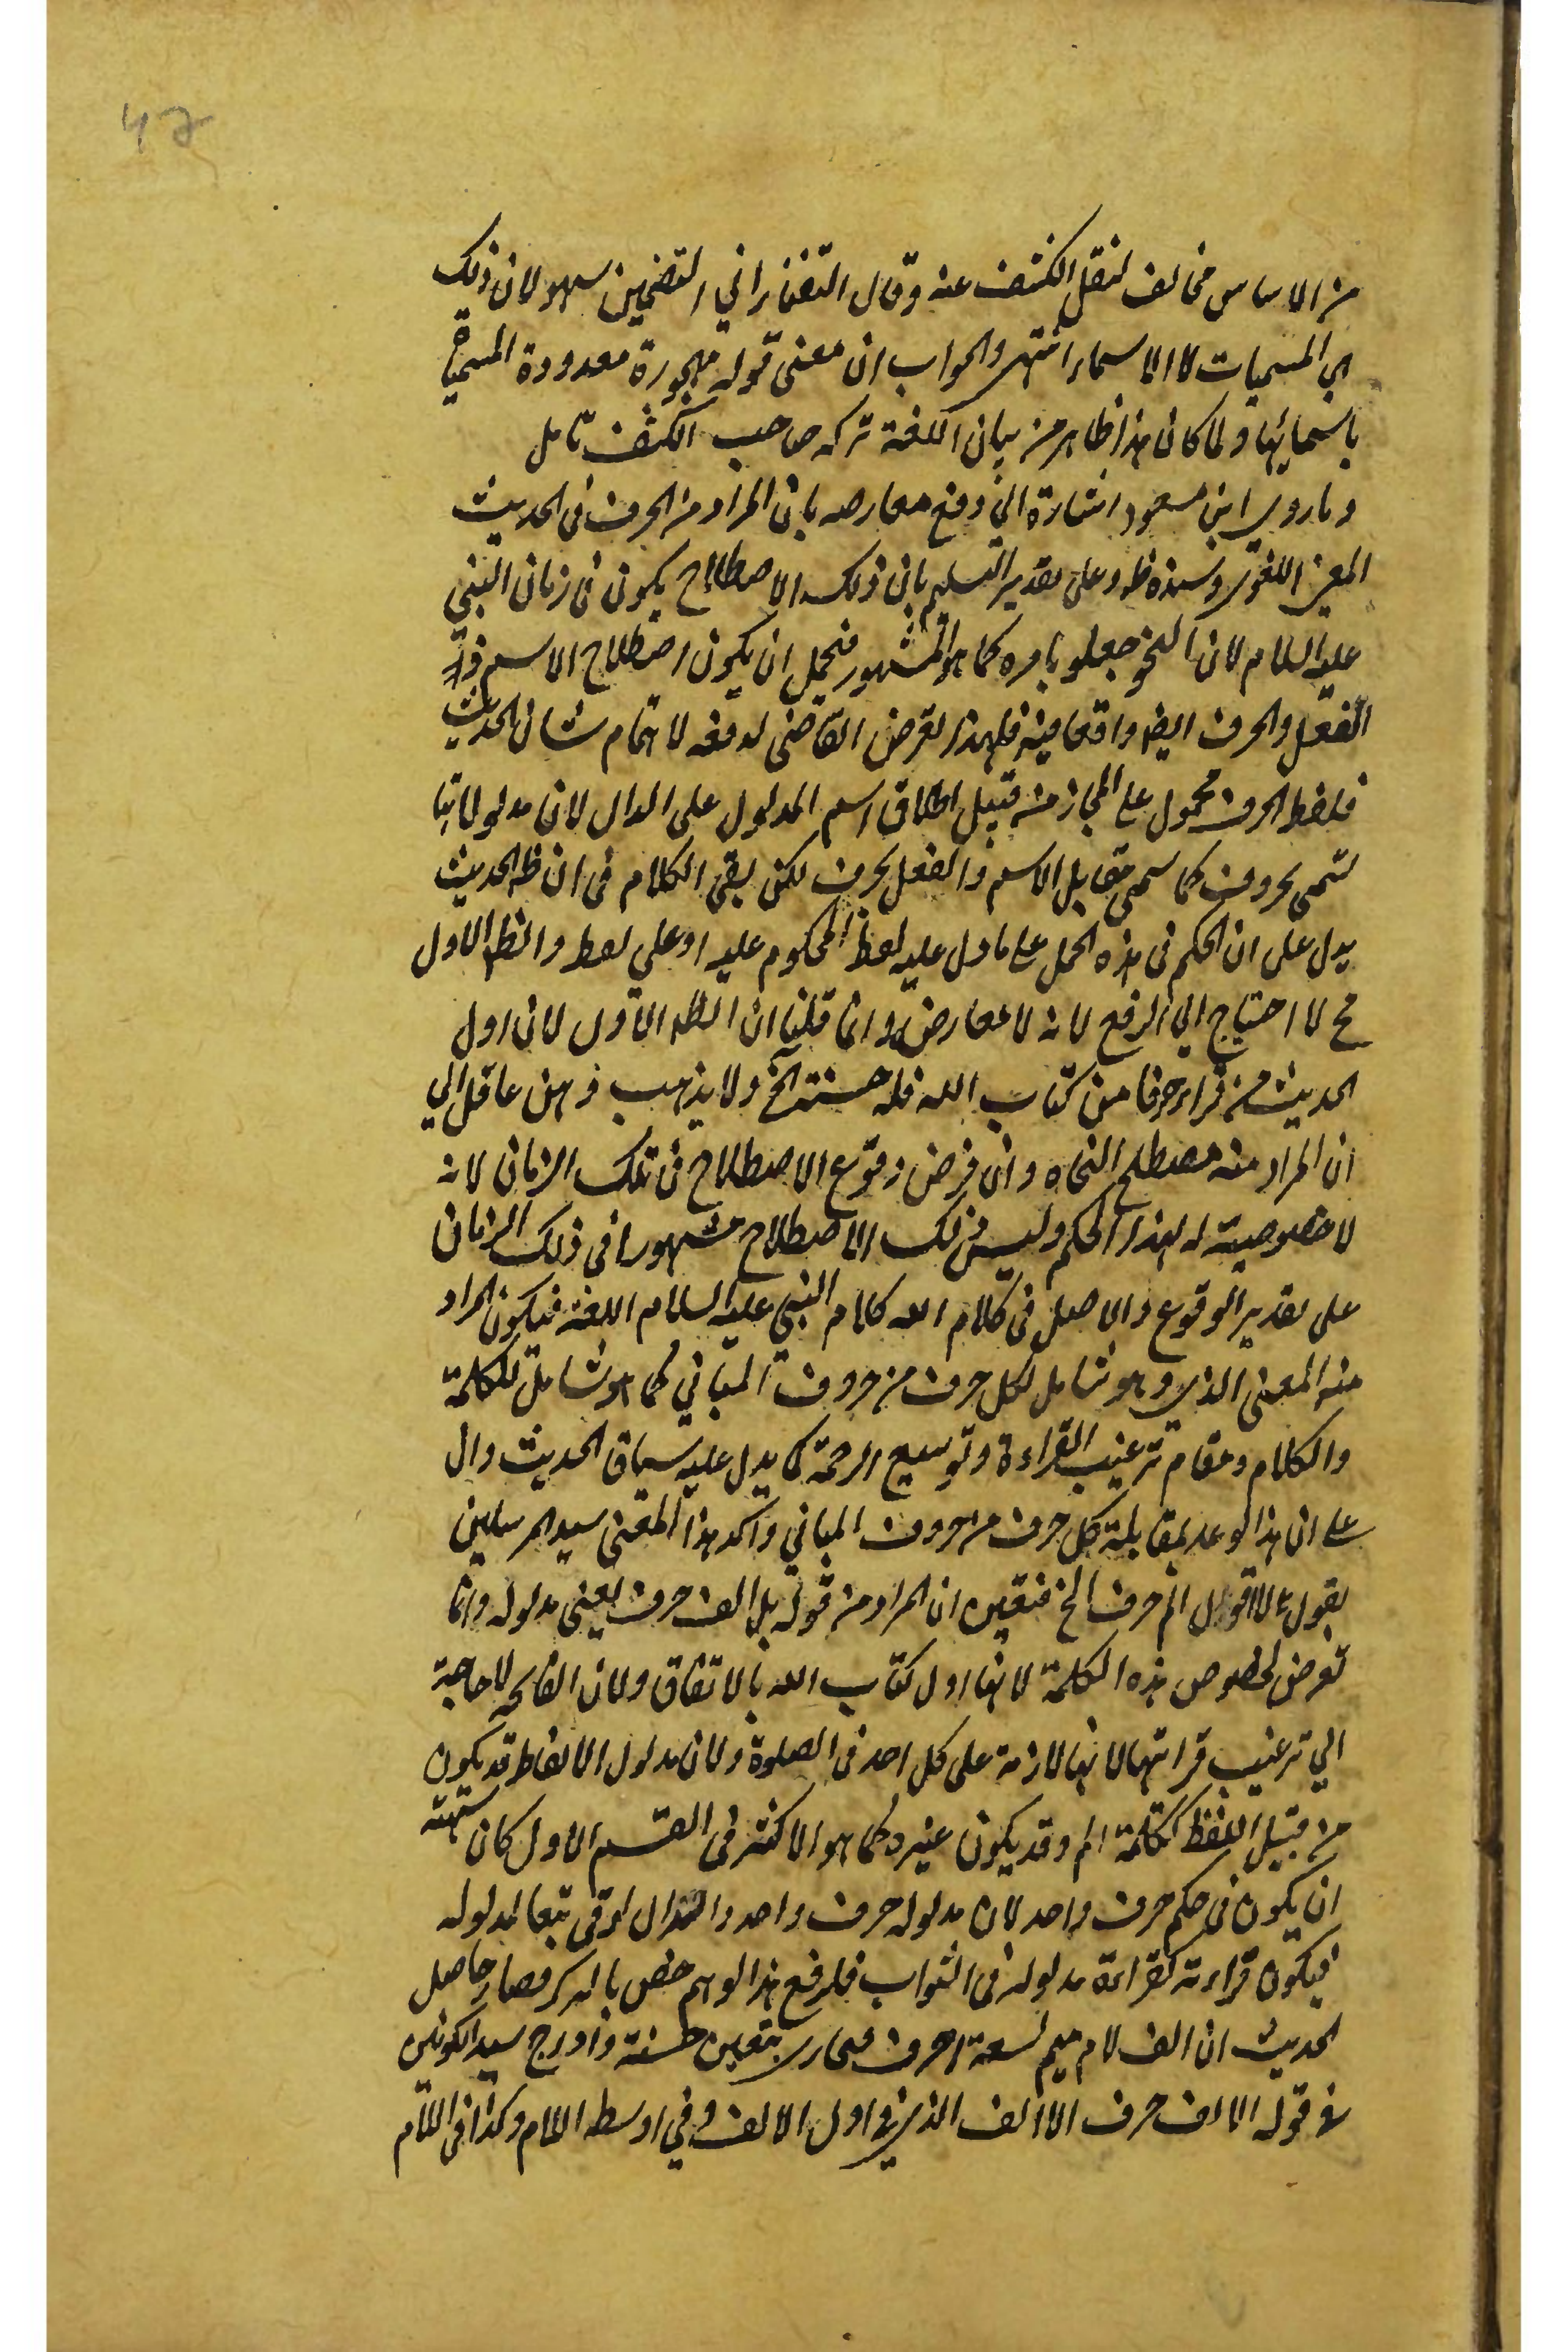 47
من الاساس مخالف لنقل الكشف عنه وقال التفتازاني التضمين سهو لان ذلك
هي المسميات لا الاسماء انتهى والجواب ان معنى قوله مهجورة معدودة المسميات
باسمائها ولما كان هذا ظاهر من بيان اللغة تركه صاحب الكشف تامل
وما روى ابن مسعود اشارة الى دفع معارضه بان المراد من الحرف فى الحديث
المعنى اللغوى وسنده ظ وعلى تقدير التسليم بان ذلك الاصطلاح يكون فى زمان النبي
عليه السلام لان النحو جعلو بامره كما هو المشهور فيحمل ان يكون اصطلاح الاسم
الفعل والحرف ايضا واقعا فيه فلهذا تعرض القاضى لدفعه لاهتمام شان الحديث
فلفظ الحرف محمول على المجاز من قبيل اطلاق اسم المدلول على الدال لان مدلولاتها
تسمى بحروف كما سمى مقابل الاسم والفعل بحرف لكن بقى الكلام فى ان ظ الحديث
يدل على ان الحكم فى هذه الجمل على ما دل عليه لفظ المحكوم عليه او على لفظ والظ الاول
مح لا احتياج الى الرفع لانه لا معارض وانما قلنا ان الظ الاول لان اول
الحديث من قرا حرفا من كتاب الله فله حسنة الخ ولا يذهب ذهن عاقل الى
ان المراد منه مصطلح النحاه وان فرض وقوع الاصطلاح فى تلك الزمان لانه
لا خصوصية له لهذا الحكم وليس ذلك الاصطلاح مشهورا فى ذلك الزمان
على تقدير الوقوع والاصل فى كلام الله كلام النبي عليه السلام اللغة فيكون المراد
منه المعنى الذى وهو شامل لكل حرف من حروف المبانى كما هو شامل للكلمة
والكلام ومقام ترغيب القراءة وتوسيع الرحمة كما يدل عليه سياق الحديث دال
على ان هذا الوعد بمقابلة كل حرف من حروف المبانى واكد هذا المعنى سيد المرسلين
بقوله لا اقول الم حرف الخ فتعين ان المراد من قوله بل الف حرف يعنى مدلوله وانما
تعرض لخصوص هذه الكلمة لانها اول كتاب الله بالاتفاق ولان الفاتحه لا حاجة
الى ترغيب قراتها لانها لازمة على كل احد فى الصلوة ولان مدلول الالفاظ قد يكون
من قبيل اللفظ ككلمة الم وقد يكون غيره كما هو الاكثر فى القسم الاول كان شبهة
ان يكون فى حكم حرف واحد لان مدلوله حرف واحد والدال تبعا لمدلوله
فيكون قراءته كقراءة مدلوله فى الثواب فلرفع هذا الوهم خص بالذكر فصار حاصل
الحديث ان الف لام ميم تسعة احرف بتعين حسنة وادرج سيد الكونين
فى قوله الالف حرف الالف الذى فى اول الالف وفي اوسطه اللام وكذا فى اللام